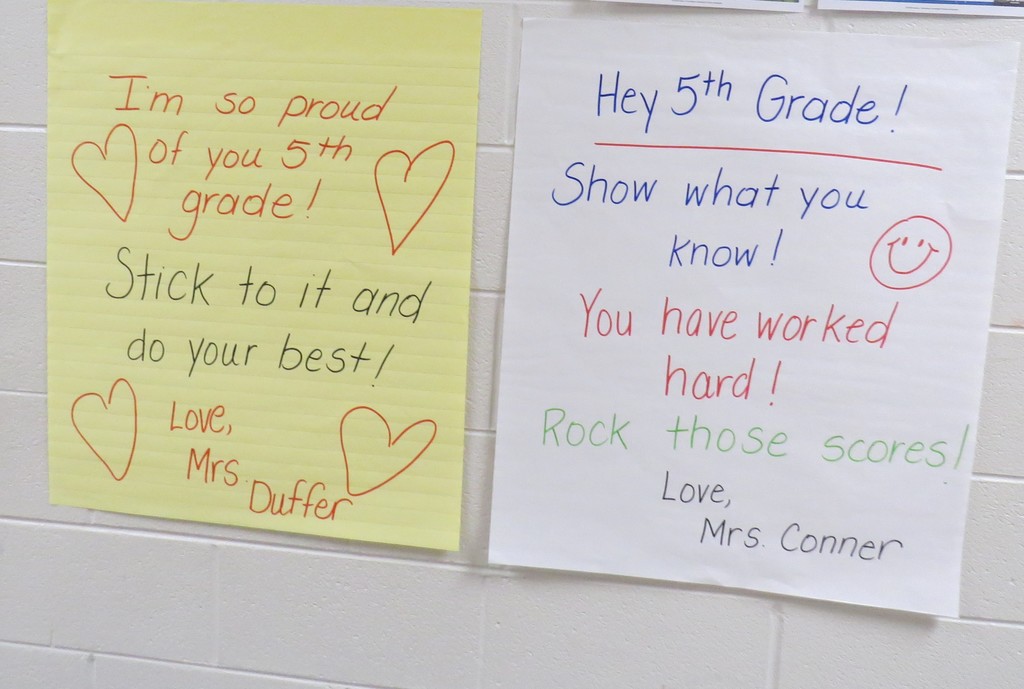 I'm so proud
of you 5th
grade!
Stick to it and
do your best!
Love,
Mrs.
Duffer
Hey 5th Grade!
Show what you
know!
You have worked
hard!
Rock those scores!
Love,
Mrs. Conner